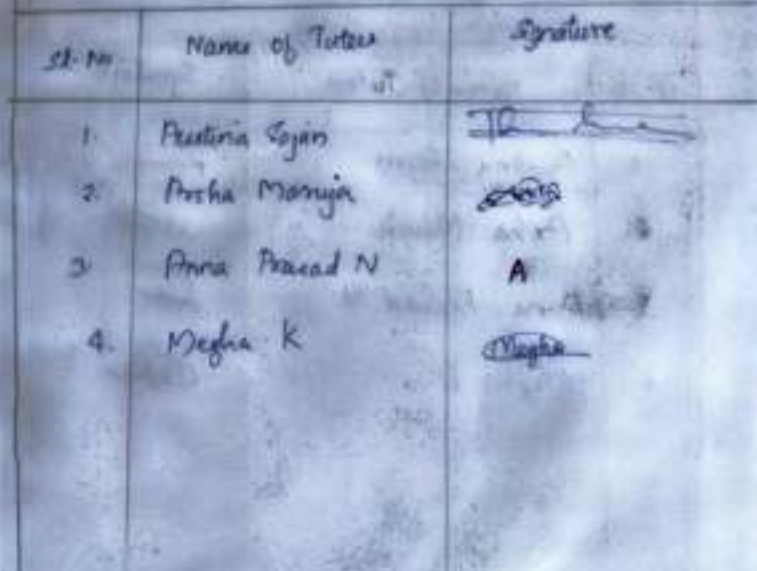 Sl. No Name of Tutees Signature
1. Pristina Sojan
2. Arsha Manuja
3 Anna Prasad N A
4. Megha K Megha